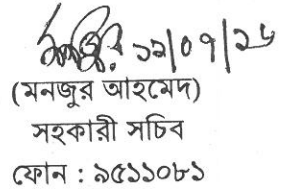 ১২/০৭/২৬
(মনজুর আহমেদ)
সহকারী সচিব
ফোন : ৯৫১১০৮১